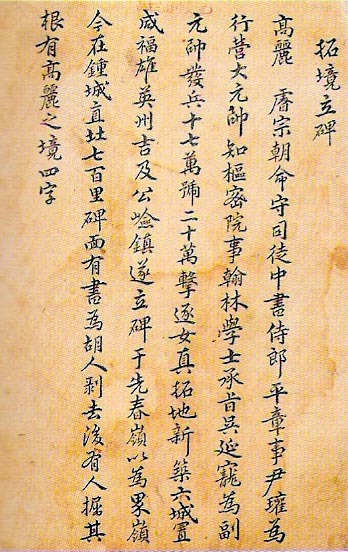 拓境立碑
高麗 睿宗朝命守司徒中書侍郎平章事尹瓘為
行營大元帥知樞密院事翰林學士承旨吳延寵為副
元帥發兵十七萬號二十萬擊逐女真拓地新築六城置
咸福雄英州吉及公嶮鎮遂立碑于先春嶺以為界嶺
今在鍾城直北七百里碑面有書為胡人剥去後有人掘其
根有高麗之境四字